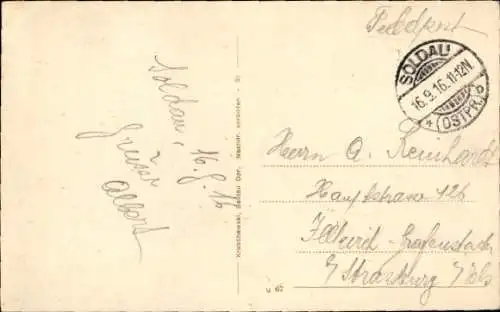 Feldpost
SOLDAU
16.9.16.11-12N.
* (OSTPR.) b
Soldau, 16.9.16
Grüsse
Albert
Herrn A. Reinhardt
Hauptstrasse 126
Illkirch-Grafenstaden
b/ Strassburg i/Els
Nachdr. verboten.
u 67